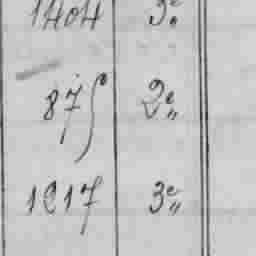 1404 3e„
875 2e„
1217 3e„